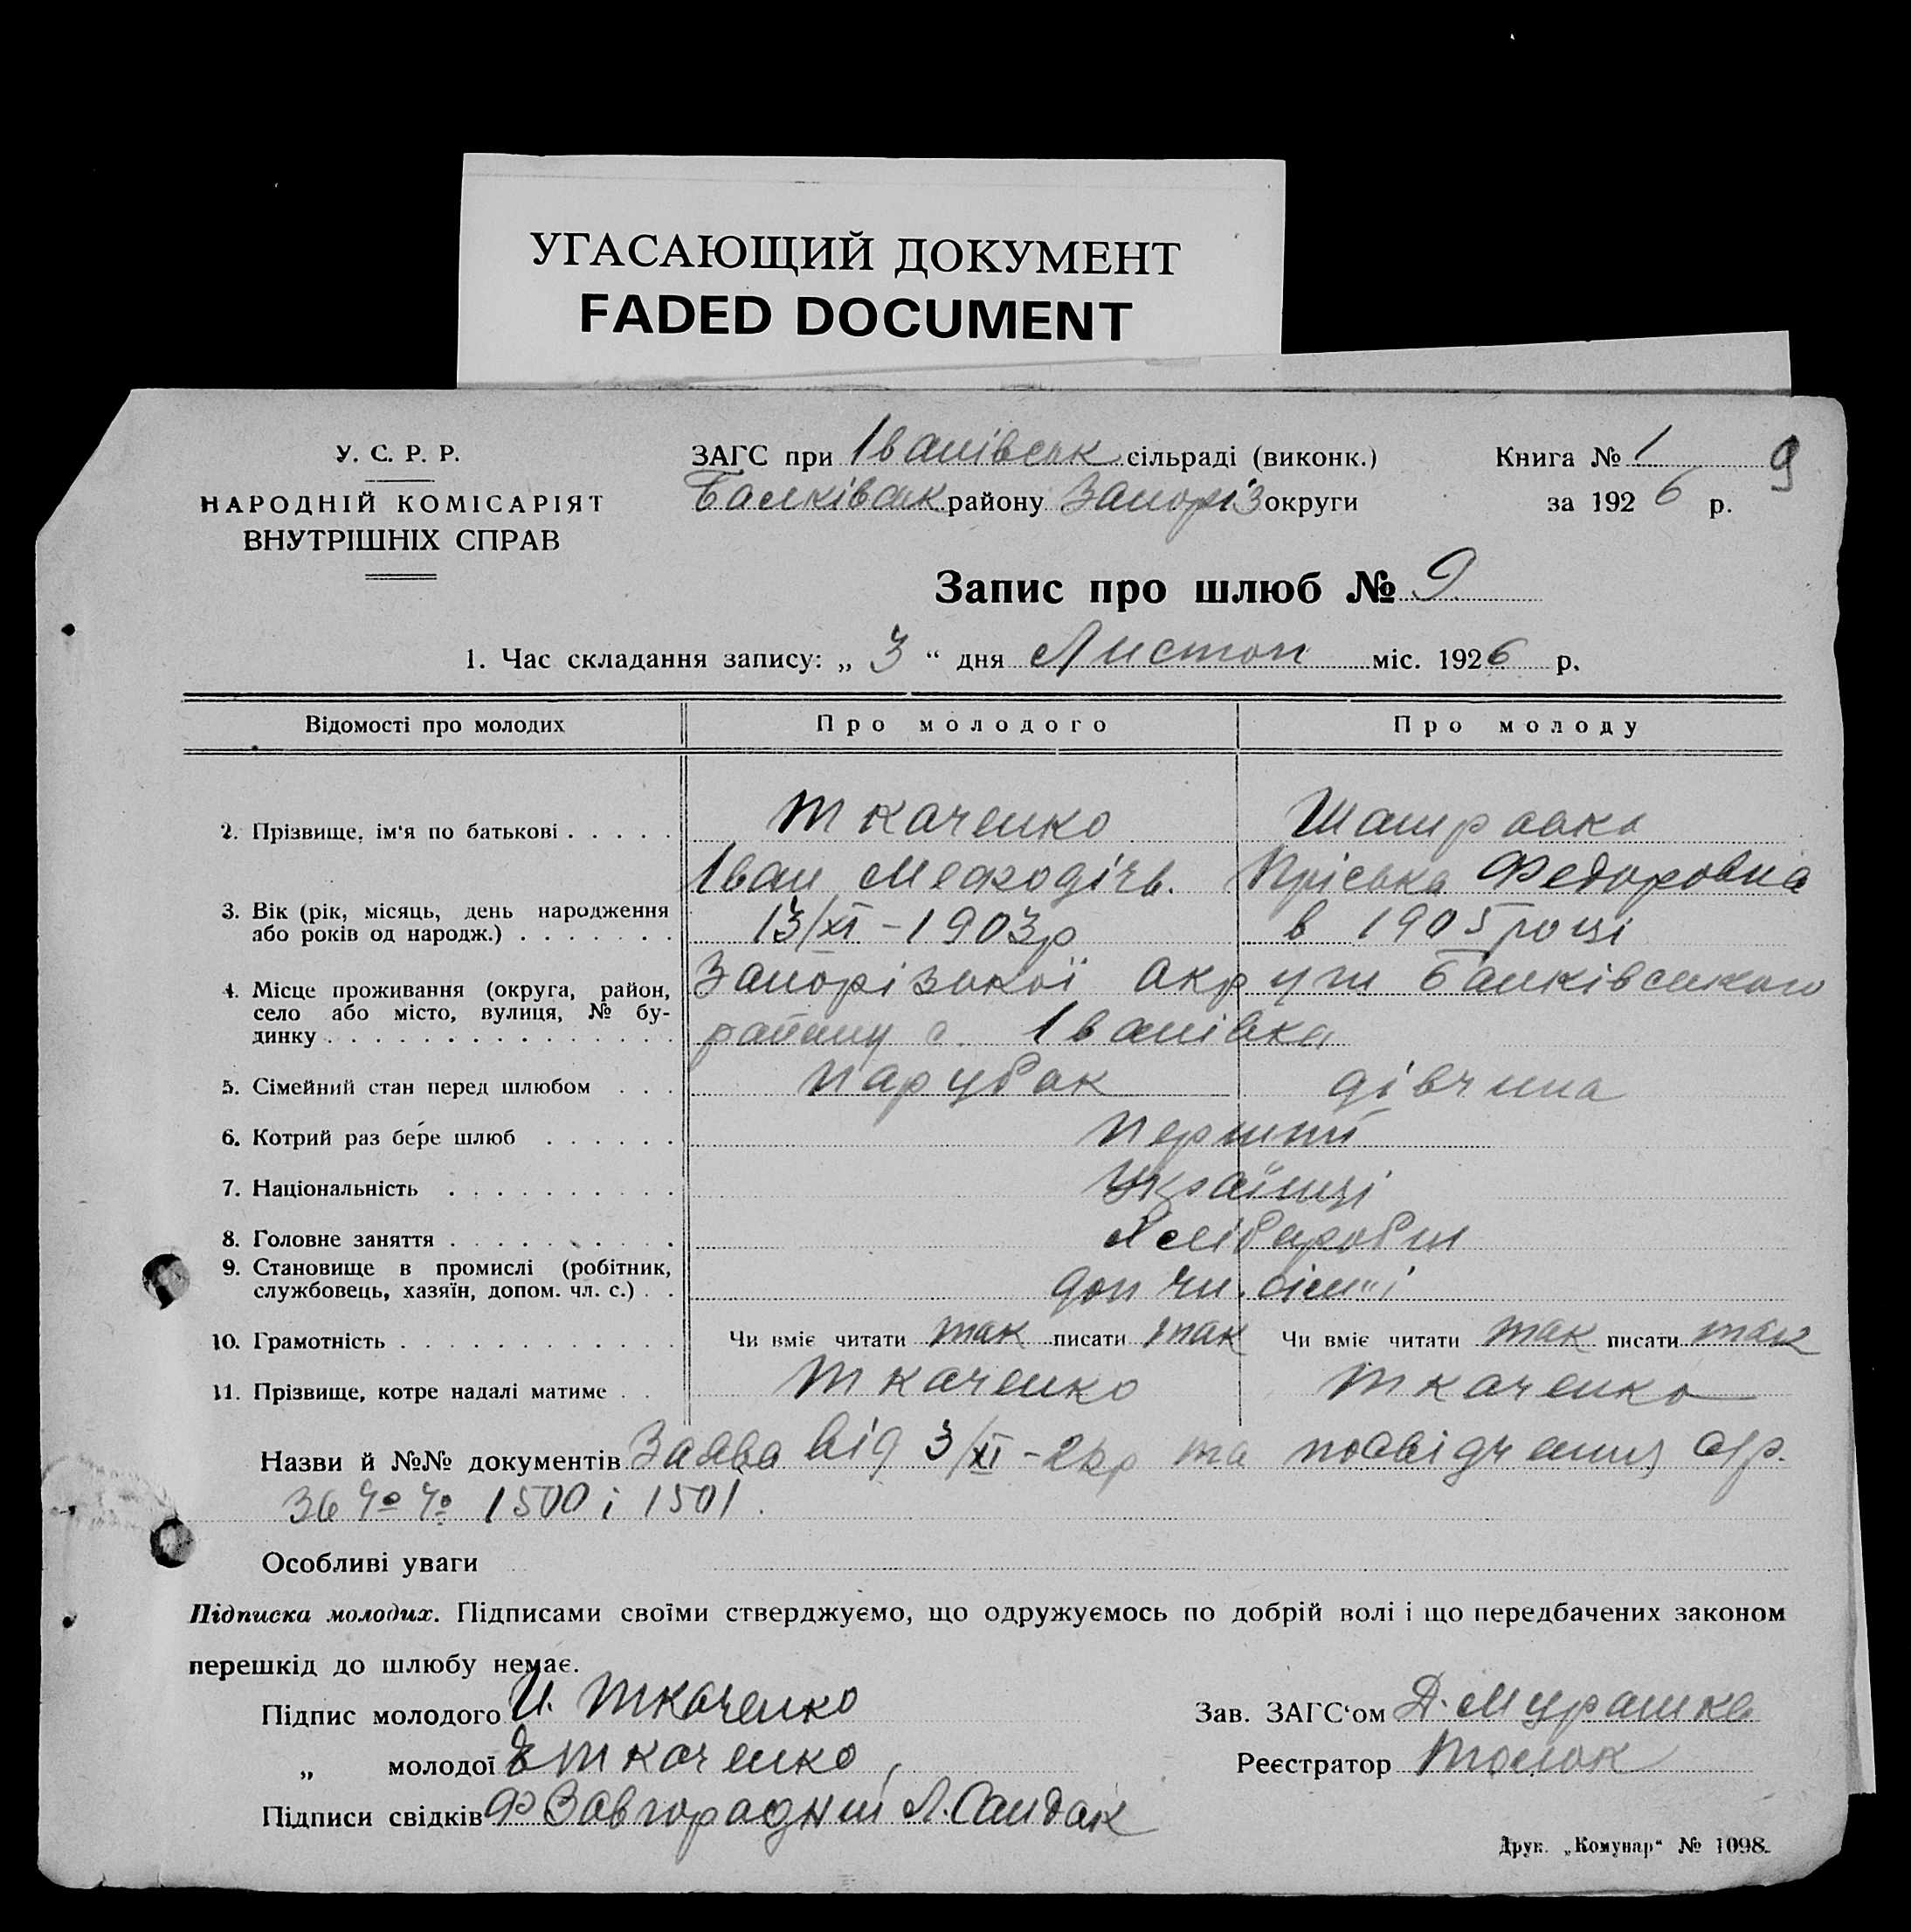 УГАСАЮЩИЙ ДОКУМЕНТ
FADED DOCUMENT
У. С. Р. Р.
НАРОДНІЙ КОМІСАРІЯТ
ВНУТРІШНІХ СПРАВ
ЗАГС при Іванівськ сільраді (виконк.)
Балківськ району Запоріз округи
Книга № 1 9
за 1926 р.
Запис про шлюб № 9
1. Час складання запису: „ 3 “ дня Листоп міс. 1926 р.
Відомості про молодих Про молодого Про молоду
2. Прізвище, ім'я по батькові . . . . . Ткаченко
Іван Мефодієв. Пріська Федоровна
3. Вік (рік, місяць, день народження
або років од народж.) . . . . . . . 13/XI - 1903р в 1905 році
4. Місце проживання (округа, район,
село або місто, вулиця, № бу-
динку . . . . . . . . . . . . . . .
Запорізької акруги Балківського
району с. Іванівка
5. Сімейний стан перед шлюбом . . . парубок дівчина
6. Котрий раз бере шлюб . . . . . . перший
7. Національність . . . . . . . . . . Українці
8. Головне заняття . . . . . . . . . . Хліборобин
9. Становище в промислі (робітник,
службовець, хазяїн, допом. чл. с.) . . доп чл. сім'ї
10. Грамотність . . . . . . . . . . . . Чи вміє читати так писати так Чи вміє читати так писати так
11. Прізвище, котре надалі матиме . . Ткаченко Ткаченко
Назви й №№ документів Заява від 3/XI - 26р та посвідчення с/р.
за №№ 1500 і 1501.
Особливі уваги
Підписка молодих. Підписами своїми стверджуємо, що одружуємось по добрій волі і що передбачених законом
перешкід до шлюбу немає.
Підпис молодого И. Ткаченко
„ молодої Е Ткаченко
Підписи свідків Ф Завгородний Л. Сандак
Зав. ЗАГС'ом Д. Мурашка
Реєстратор
Друк. „Комунар“ № 1098.